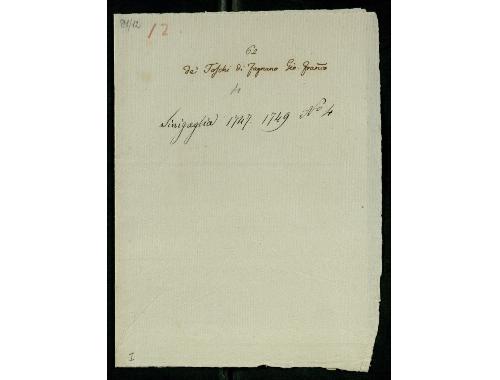 84/12
12
62
de' Toschi di Fagnano Gio. Franco
4
Sinigaglia 1747. 1749 No 4
I